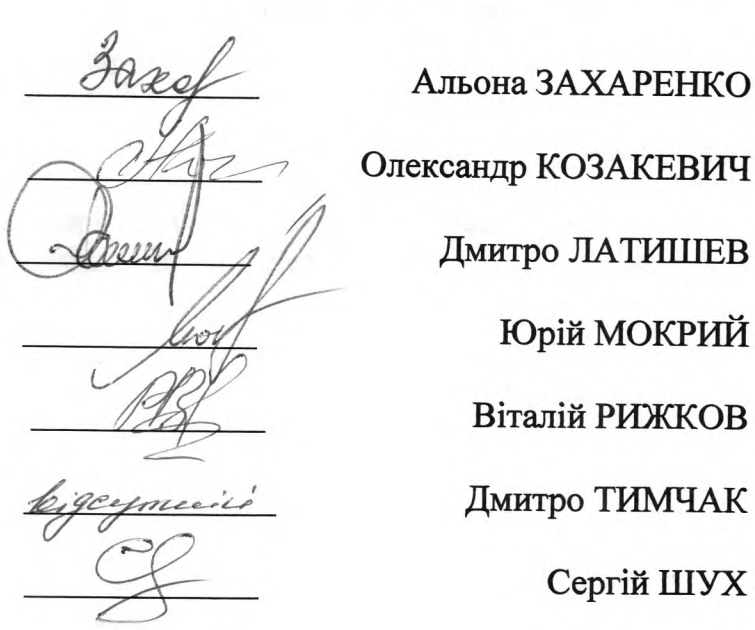 Захар Альона ЗАХАРЕНКО
Олександр КОЗАКЕВИЧ
Дмитро ЛАТИШЕВ
Юрій МОКРИЙ
Віталій РИЖКОВ
відсутній Дмитро ТИМЧАК
Сергій ШУХ